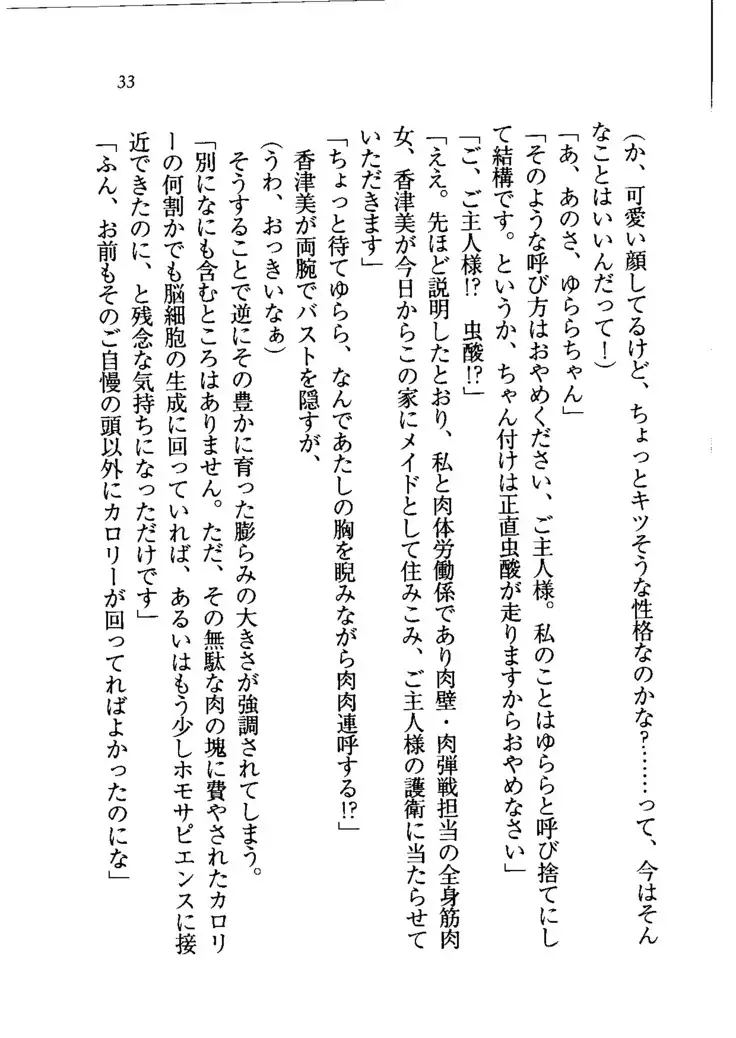 33
(か、可愛い顔してるけど、ちょっとキツそうな性格なのかな?……って、今はそん
なことはいいんだって!)
「あ、あのさ、ゆららちゃん」
「そのような呼び方はおやめください、ご主人様。私のことはゆららと呼び捨てにし
て結構です。というか、ちゃん付けは正直虫酸が走りますからおやめなさい」
「ご、ご主人様!? 虫酸!?」
「ええ。先ほど説明したとおり、私と肉体労働係であり肉壁・肉弾戦担当の全身筋肉
女、香津美が今日からこの家にメイドとして住みこみ、ご主人様の護衛に当たらせて
いただきます」
「ちょっと待てゆらら、なんであたしの胸を睨みながら肉肉連呼する!?」
香津美が両腕でバストを隠すが、
(うわ、おっきいなぁ)
そうすることで逆にその豊かに育った膨らみの大きさが強調されてしまう。
「別になにも含むところはありません。ただ、その無駄な肉の塊に費やされたカロリ
ーの何割かでも脳細胞の生成に回っていれば、あるいはもう少しホモサピエンスに接
近できたのに、と残念な気持ちになっただけです」
「ふん、お前もそのご自慢の頭以外にカロリーが回ってればよかったのにな」